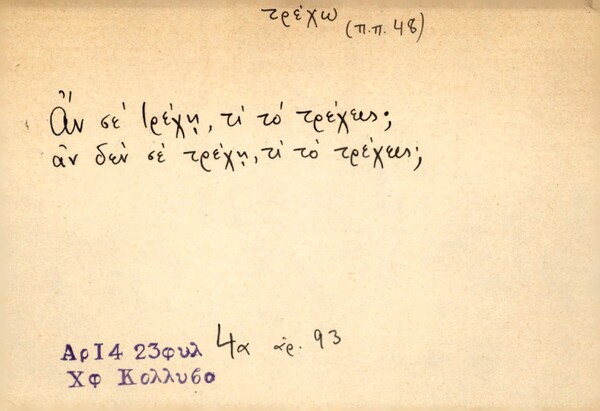 τρέχω (π.π. 48)
Ἂν σὲ τρέχῃ, τί τὸ τρέχεις;
ἂν δὲν σὲ τρέχῃ, τί τὸ τρέχεις;
ΑρΙ4 23φυλ 4α ἀρ. 93
Χφ Κολλυβο